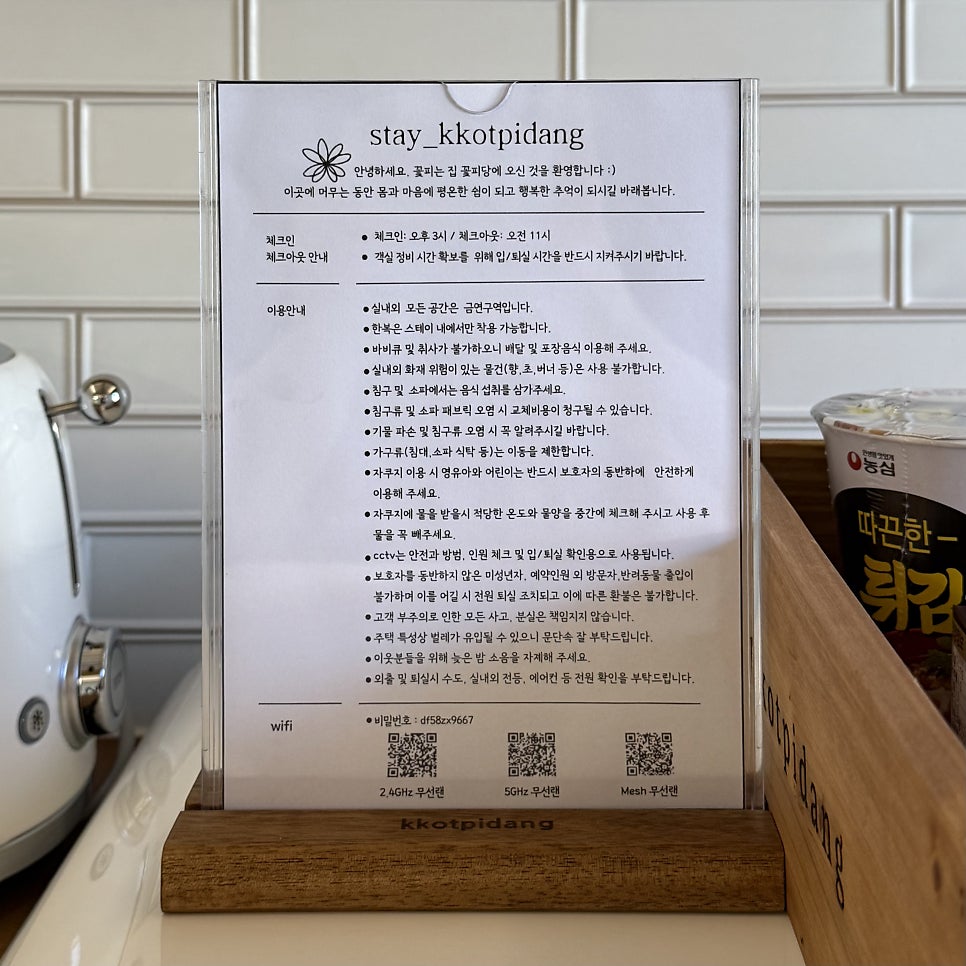 stay_kkotpidang
안녕하세요, 꽃피는 집 꽃피당에 오신 것을 환영합니다 :)
이곳에 머무는 동안 몸과 마음에 평온한 쉼이 되고 행복한 추억이 되시길 바래봅니다.
체크인
체크아웃 안내
● 체크인: 오후 3시 / 체크아웃: 오전 11시
● 객실 정비 시간 확보를 위해 입/퇴실 시간을 반드시 지켜주시기 바랍니다.
이용안내
● 실내외 모든 공간은 금연구역입니다.
● 한복은 스테이 내에서만 착용 가능합니다.
● 바비큐 및 취사가 불가하오니 배달 및 포장음식 이용해 주세요.
● 실내외 화재 위험이 있는 물건(향,초,버너 등)은 사용 불가합니다.
● 침구 및 소파에서는 음식 섭취를 삼가주세요.
● 침구류 및 소파 패브릭 오염 시 교체비용이 청구될 수 있습니다.
● 기물 파손 및 침구류 오염 시 꼭 알려주시길 바랍니다.
● 가구류(침대,소파 식탁 등)는 이동을 제한합니다.
● 자쿠지 이용 시 영유아와 어린이는 반드시 보호자의 동반하에 안전하게
이용해 주세요.
● 자쿠지에 물을 받을시 적당한 온도와 물양을 중간에 체크해 주시고 사용 후
물을 꼭 빼주세요.
● cctv는 안전과 방범, 인원 체크 및 입/퇴실 확인용으로 사용됩니다.
● 보호자를 동반하지 않은 미성년자, 예약인원 외 방문자,반려동물 출입이
불가하며 이를 어길 시 전원 퇴실 조치되고 이에 따른 환불은 불가합니다.
● 고객 부주의로 인한 모든 사고, 분실은 책임지지 않습니다.
● 주택 특성상 벌레가 유입될 수 있으니 문단속 잘 부탁드립니다.
● 이웃분들을 위해 늦은 밤 소음을 자제해 주세요.
● 외출 및 퇴실시 수도, 실내외 전등, 에어컨 등 전원 확인을 부탁드립니다.
wifi
● 비밀번호 : df58zx9667
2,4GHz 무선랜
5GHz 무선랜
Mesh 무선랜
kkotpidang
농심
따끈한
튀김
kkotpidang